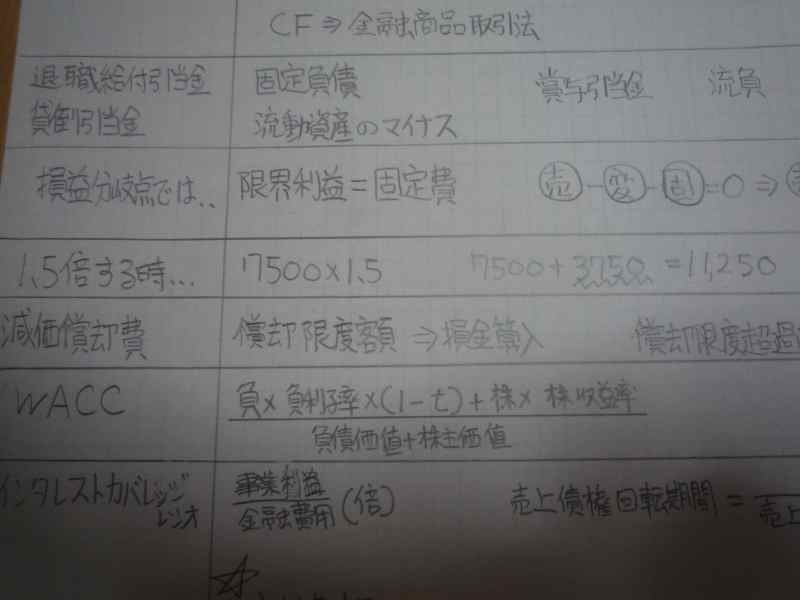 CF⇒金融商品取引法
退職給付引当金 固定負債 賞与引当金 流負
貸倒引当金 流動資産のマイナス
損益分岐点では.. 限界利益=固定費 売-変-固=0⇒
1.5倍する時... 7500×1.5 7500+3750=11,250
減価償却費 償却限度額⇒損金算入 償却限度超過
WACC 負×負利子率×(1-t)+株×株収益率
負債価値+株主価値
インタレストカバレッジ 事業利益
レシオ 金融費用 (倍) 売上債権回転期間=
売上